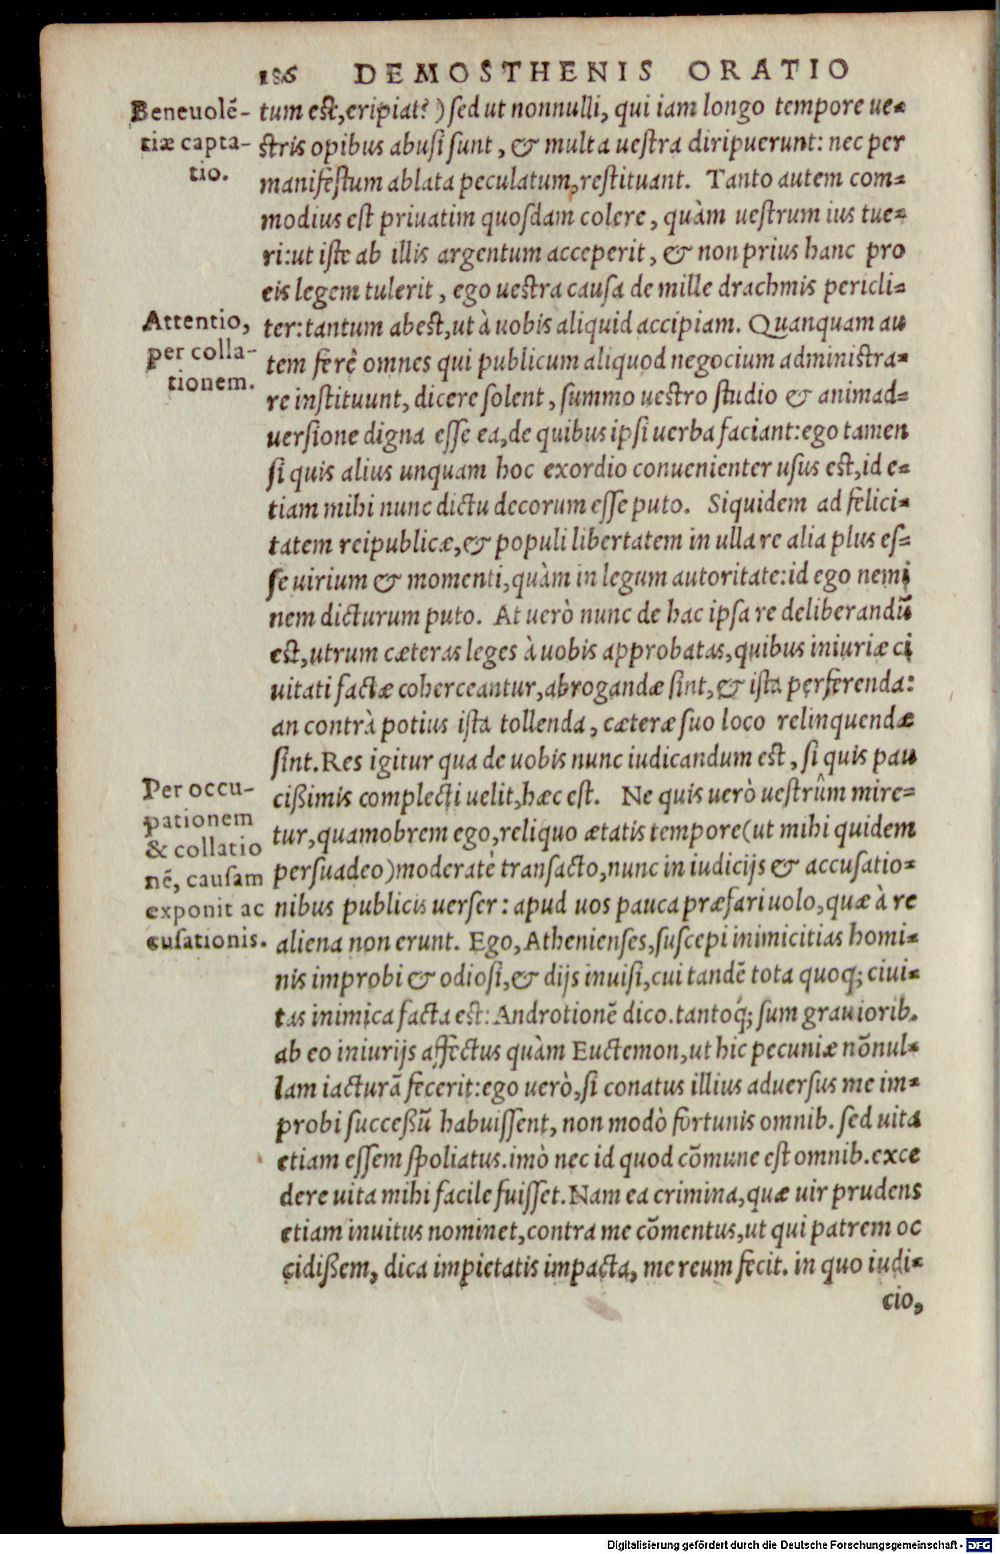 186 DEMOSTHENIS ORATIO
Beneuolē-
tiæ capta-
tio.
tum est, eripiat?) sed ut nonnulli, qui iam longo tempore ue-
stris opibus abusi sunt, & multa uestra diripuerunt: nec per
manifestum ablata peculatum, restituant. Tanto autem com-
modius est priuatim quosdam colere, quàm uestrum ius tue-
ri: ut iste ab illis argentum acceperit, & non prius hanc pro
eis legem tulerit, ego uestra causa de mille drachmis pericli-
Attentio,
per colla-
tionem.
ter: tantum abest, ut à uobis aliquid accipiam. Quanquam au
tem ferè omnes qui publicum aliquod negocium administra-
re instituunt, dicere solent, summo uestro studio & animad-
uersione digna esse ea, de quibus ipsi uerba faciant: ego tamen
si quis alius unquam hoc exordio conuenienter usus est, id e-
tiam mihi nunc dictu decorum esse puto. Siquidem ad felici-
tatem reipublicæ, & populi libertatem in ulla re alia plus es-
se uirium & momenti, quàm in legum autoritate: id ego nemi
nem dicturum puto. At uerò nunc de hac ipsa re deliberandū
est, utrum cæteras leges à uobis approbatas, quibus iniuriæ ci
uitati factæ coherceantur, abrogandæ sint, & ista perferenda:
an contrà potius ista tollenda, cæteræ suo loco relinquendæ
sint. Res igitur qua de uobis nunc iudicandum est, si quis pau
Per occu-
pationem
& collatio
nē, causam
exponit ac
cusationis.
cißimis complecti uelit, hæc est. Ne quis uerò uestrûm mire-
tur, quamobrem ego, reliquo ætatis tempore (ut mihi quidem
persuadeo) moderatè transacto, nunc in iudicijs & accusatio-
nibus publicis uerser: apud uos pauca præfari uolo, quæ à re
aliena non erunt. Ego, Athenienses, suscepi inimicitias homi-
nis improbi & odiosi, & dijs inuisi, cui tandē tota quoq; ciui-
tas inimica facta est: Androtionē dico. tantoq́; sum grauiorib.
ab eo iniurijs affectus quàm Euctemon, ut hic pecuniæ nōnul-
lam iacturā fecerit: ego uerò, si conatus illius aduersus me im-
probi succeßū habuissent, non modò fortunis omnib. sed uita
etiam essem spoliatus. imò nec id quod cōmune est omnib. exce
dere uita mihi facile fuisset. Nam ea crimina, quæ uir prudens
etiam inuitus nominet, contra me cōmentus, ut qui patrem oc
cidißem, dica impietatis impacta, me reum fecit. in quo iudi-
cio,
Digitalisierung gefördert durch die Deutsche Forschungsgemeinschaft - DFG